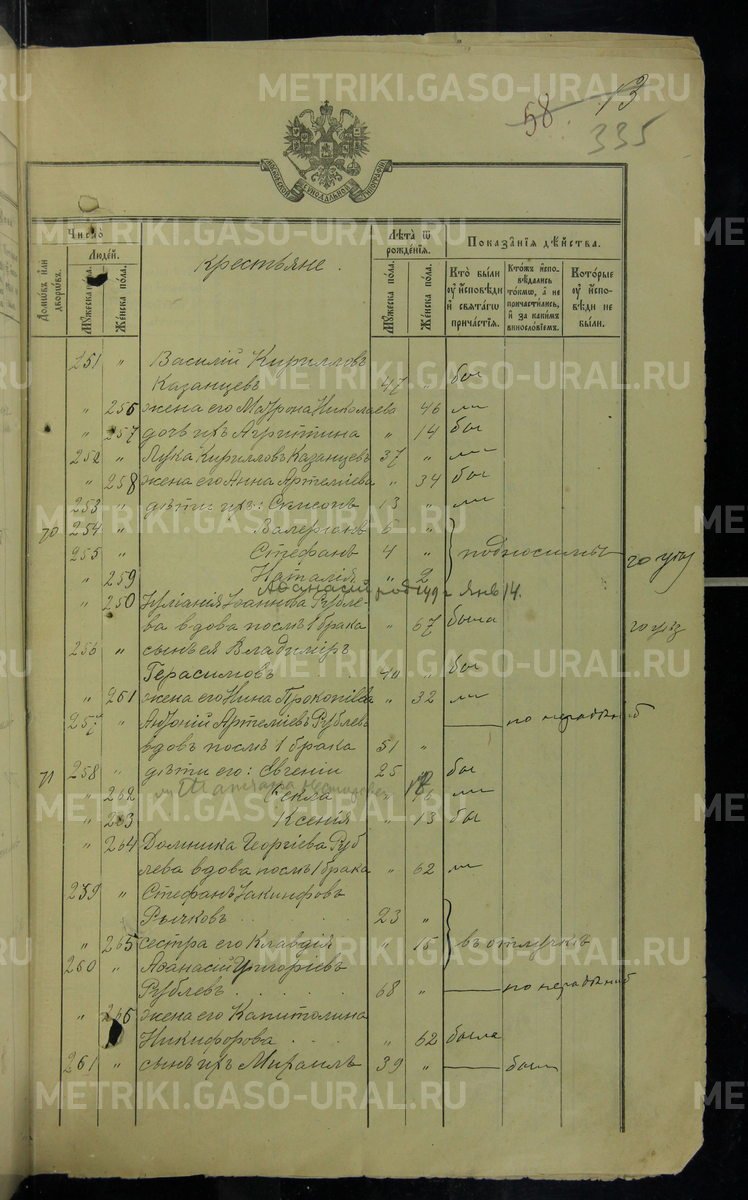 METRIKI.GASO-URAL.RU
58 13
335
МОСКОВСКОЙ СѴНОДАЛЬНОЙ ТИПОГРАФІИ
Число
Людей.
Домѡвъ или дворѡвъ.
Мꙋжеска пола.
Женска пола.
Крестьяне.
Лѣта ѿ рожденїѧ.
Мꙋжеска пола.
Женска пола.
Показанїѧ дѣйства.
Кто были оу исповѣди и свѧтагѡ причастїѧ.
Ктожъ исповѣдались токмѡ, а не причастились, и за какимъ винословїемъ.
Которые оу исповѣди не были.
251 " Василій Кирилловъ
Казанцевъ 47 " бы
" 256 жена его Матрона Николаева " 46 ли
" 257 дочь ихъ Агриппина " 14 бы
252 " Лука Кирилловъ Казанцевъ 37 " ли
" 258 жена его Анна Артемiева " 34 бы
253 " дѣти ихъ: Симеонъ 13 " ли
70 254 " Валеріанъ 6 "
255 " Стефанъ 4 " подносимы
" 259 Наталія " 2
Аѳанасій род. 1919 г. янв 14.
" 260 Іуліанія Іоаннова Рубле-
ва вдова послѣ 1 брака " 67 была
256 " сынъ ея Владиміръ
Герасимовъ 40 " бы
" 261 жена его Нина Прокопіева " 32 ли
257 " Антоній Артеміевъ Рублевъ по нерадѣнію
вдовъ послѣ 1 брака 51 "
71 258 " дѣти его: Евгеній 25 " бы
" 262 Ѳекла " 18 ли
" 263 Ксенія " 13 бы
" 264 Домника Георгіева Руб
лева вдова послѣ 1 брака " 62 ли
259 " Стефанъ Іакинѳовъ
Рычковъ 23 "
" 265 сестра его Клавдія " 15 въ отлучкѣ
260 " Аѳанасій Григоріевъ
Рублевъ 68 " по нерадѣнію
" 266 жена его Капитолина
Никифорова " 62 была
261 " сынъ ихъ Михаилъ 39 " былъ